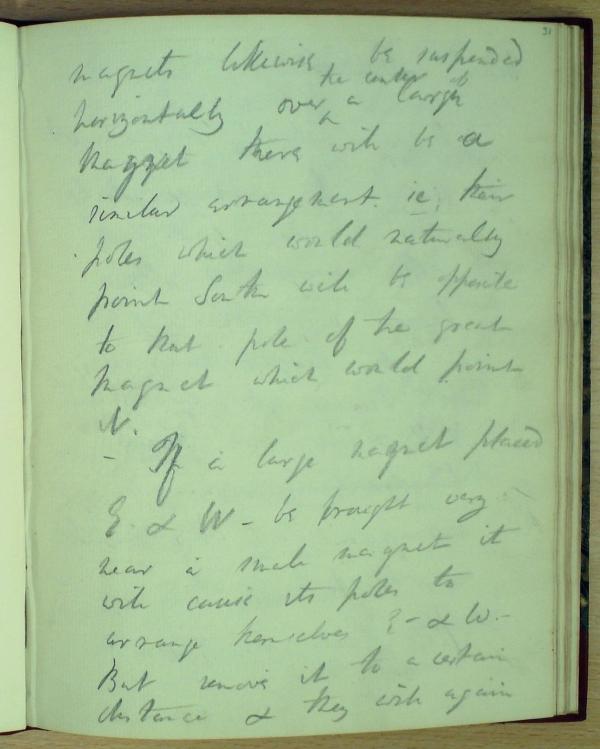 31
magnets likewise be suspended
the center of
horizontally over ^ a large
magnet there will be a
similar arrangement. ie. their
poles which would naturally
point South will be opposite
to that pole of the great
magnet which would point
N.
- If a large magnet placed
E. & W - be brought very
near a small magnet it
will cause its poles to
arrange themselves E - & W. -
But remove it to a certain
distance & they will again